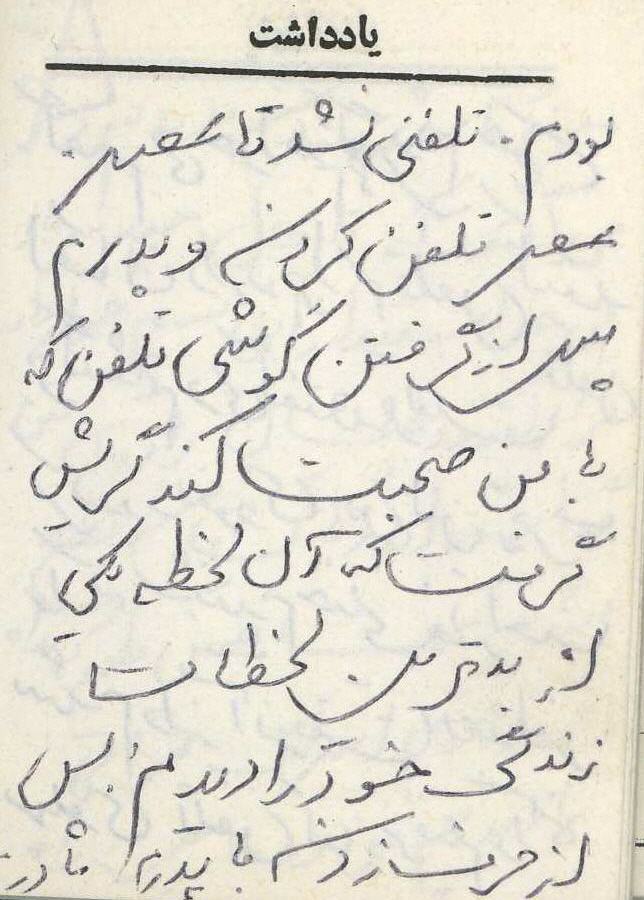 یادداشت
بودم. تلفنی نشد تا عصر.
عصر تلفن کردند و پدرم
پس از گرفتن گوشی تلفن که
با من صحبت کند گریش
گرفت که آن لحظه یکی
از بدترین لحظات
زندگی خود را دیدم. پس
از حرف زدن با پدرم مادر